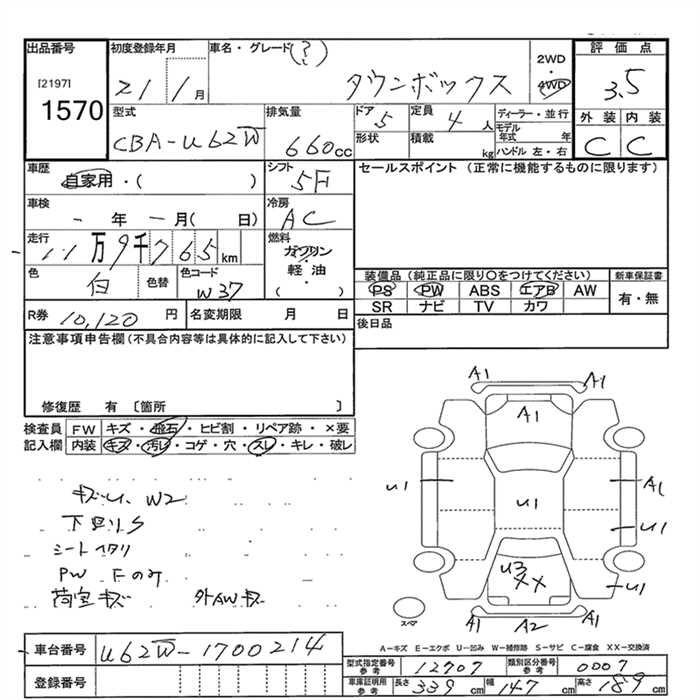 出品番号
[2197]
1570
初度登録年月
21年 1月
車名・グレード(?)
タウンボックス
2WD
・
4WD
評価点
3.5
外装 内装
C C
型式
CBA-U62W
排気量
660cc
ドア
5
形状
定員
4人
積載
kg
ディーラー・並行
モデル年式 年
ハンドル 左・右
車歴
自家用・( )
シフト
5F
セールスポイント (正常に機能するものに限ります)
車検
- 年 - 月( 日)
冷房
AC
走行
11万9千765km
燃料
ガソリン
・
軽油
( )
色
白
色替
色コード
W37
装備品 (純正品に限り〇をつけてください)
PS PW ABS エアB AW
SR ナビ TV カワ
新車保証書
有・無
R券 10,120円
名変期限 月 日
後日品
注意事項申告欄(不具合内容等は具体的に記入して下さい)
修復歴 有 〔箇所 〕
検査員 FW キズ・飛石・ヒビ割・リペア跡・×要
記入欄 内装 キズ・汚レ・コゲ・穴・スレ・キレ・破レ
キズU、W2
下回りS
シートヘタリ
PW Fのみ
荷室キズ 外AWキズ
A1 A1
A1
U1 A1
U1 U1
U3 ××
U1
A1 A2 A1
スペア
A-キズ E-エクボ U-凹み W-補修跡 S-サビ C-腐食 XX-交換済
車台番号 U62W-1700214
登録番号
型式指定番号 参考 12707
類別区分番号 参考 0007
車庫証明用 参考 長さ 339cm 幅 147cm 高さ 189cm